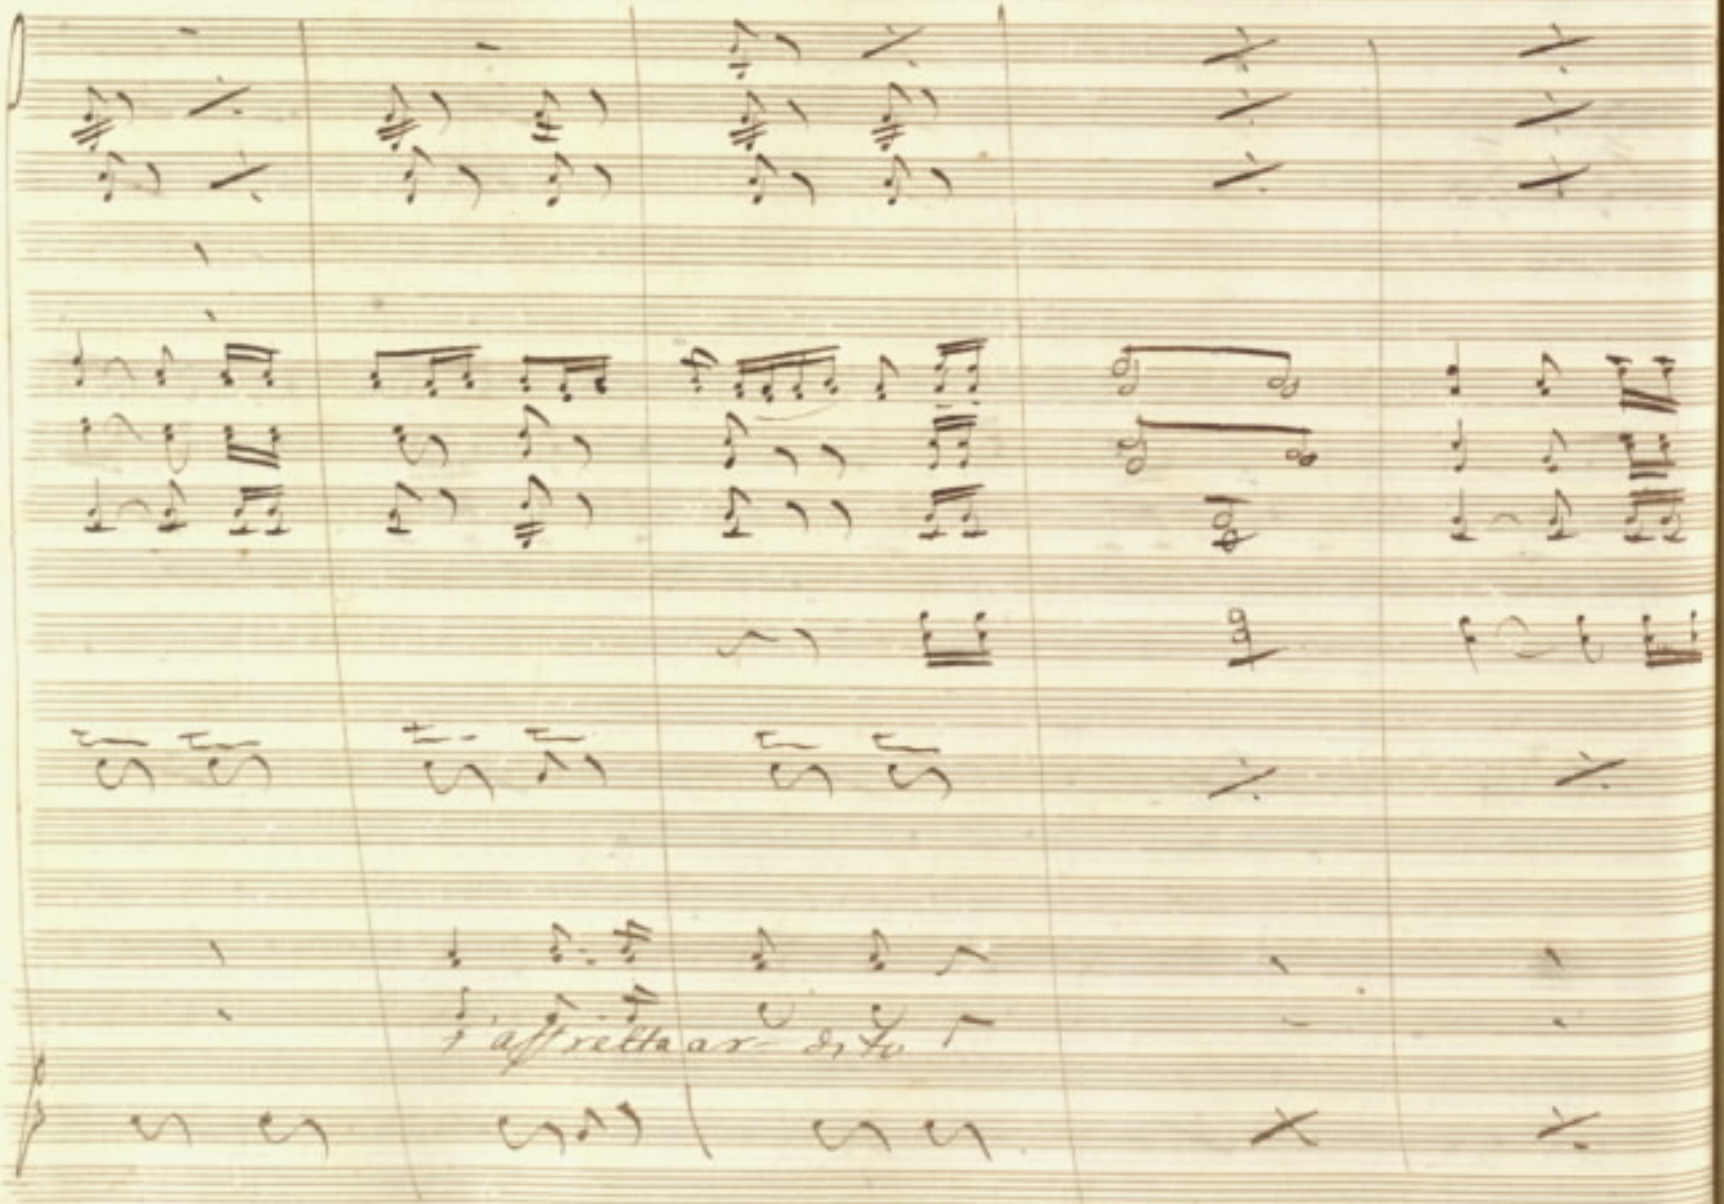 s'affretta ar- dito